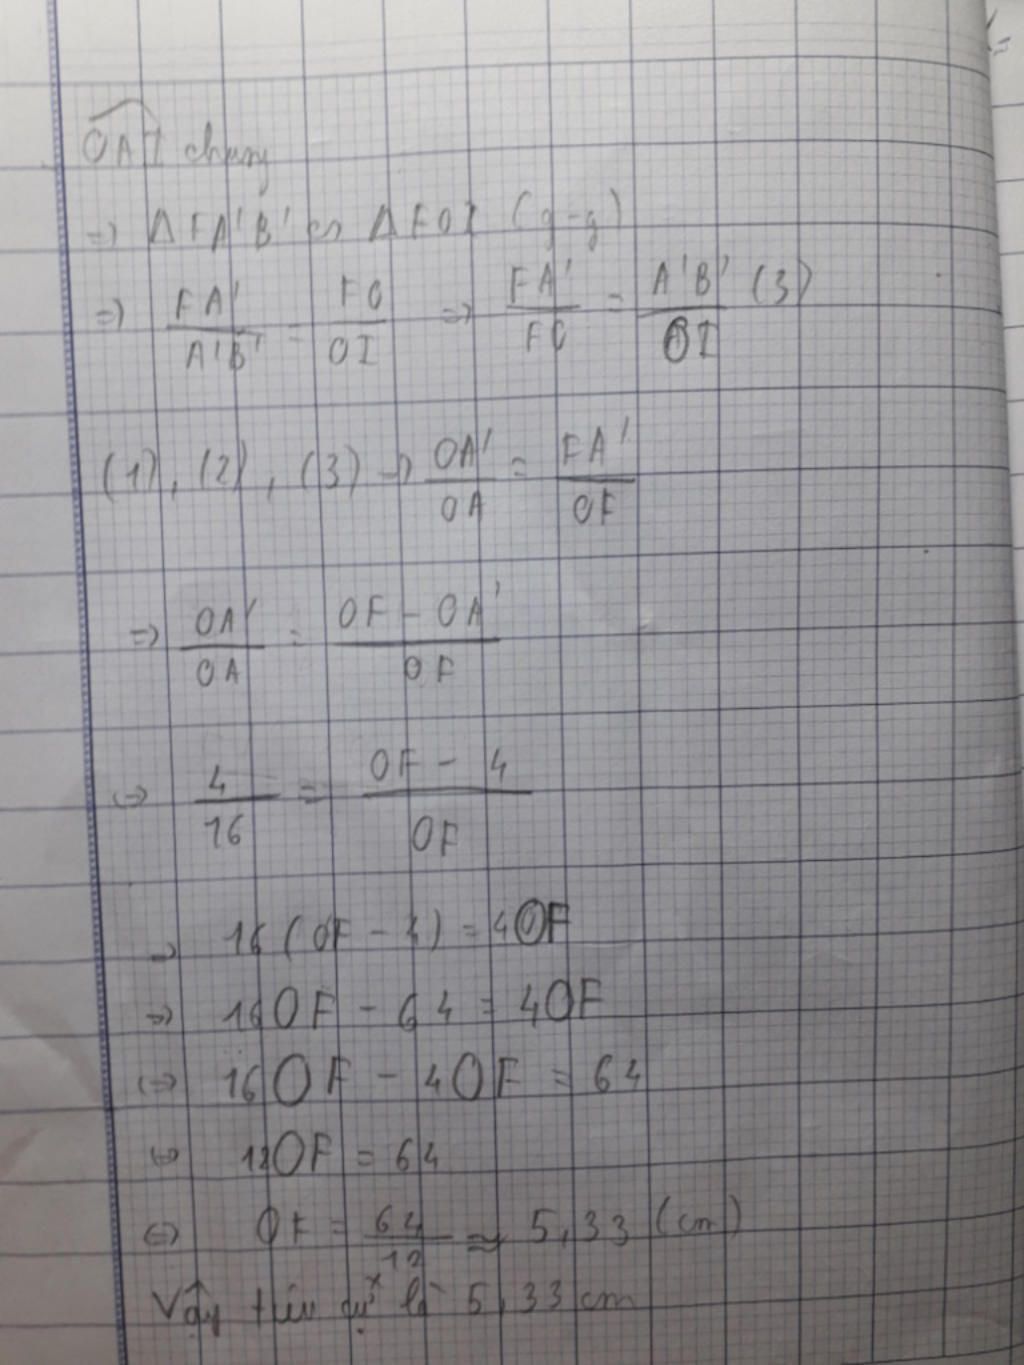 OAI chung
=> Δ FA'B' ∽ Δ FOI (g-g)
=> FA'/A'B' = FO/OI => FA'/FO = A'B'/OI (3)
(1), (2), (3) => OA'/OA = FA'/OF
=> OA'/OA = OF - OA'/OF
<=> 4/16 = OF - 4/OF
=> 16(OF - 4) = 4OF
=> 16OF - 64 = 4OF
<=> 16OF - 4OF = 64
<=> 12OF = 64
<=> OF = 64/12 ≈ 5,33 (cm)
Vậy tiêu cự là 5,33 cm